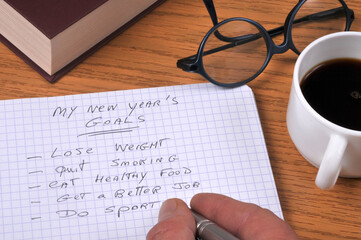 My New Year's
Goals
- Lose Weight
- Quit Smoking
- Eat Healthy Food
- Get a Better Job
- Do Sport